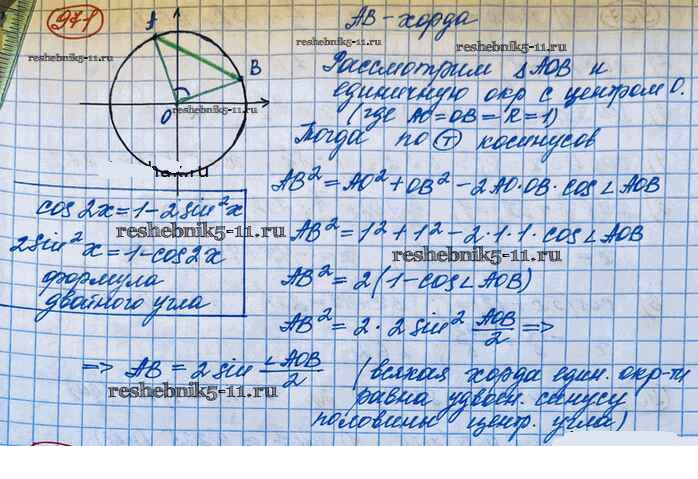 971
AB - хорда
reshebnik5-11.ru
reshebnik5-11.ru
Рассмотрим △ AOB и
единичную окр с центром O.
(где AO = OB = R = 1)
Тогда по Т косинусов
A
B
O
reshebnik5-11.ru
AB² = AO² + OB² - 2AO·OB·cos∠AOB
cos2x = 1 - 2sin²x
2sin²x = 1 - cos2x
формула
двойного угла
AB² = 1² + 1² - 2·1·1·cos∠AOB
reshebnik5-11.ru
AB² = 2(1 - cos∠AOB)
AB² = 2·2sin² AOB/2 =>
=> AB = 2sin ∠AOB/2
reshebnik5-11.ru
(всякая хорда един. окр-ти
равна удвоен. синусу
reshebnik5-11.ru
половины центр. угла)